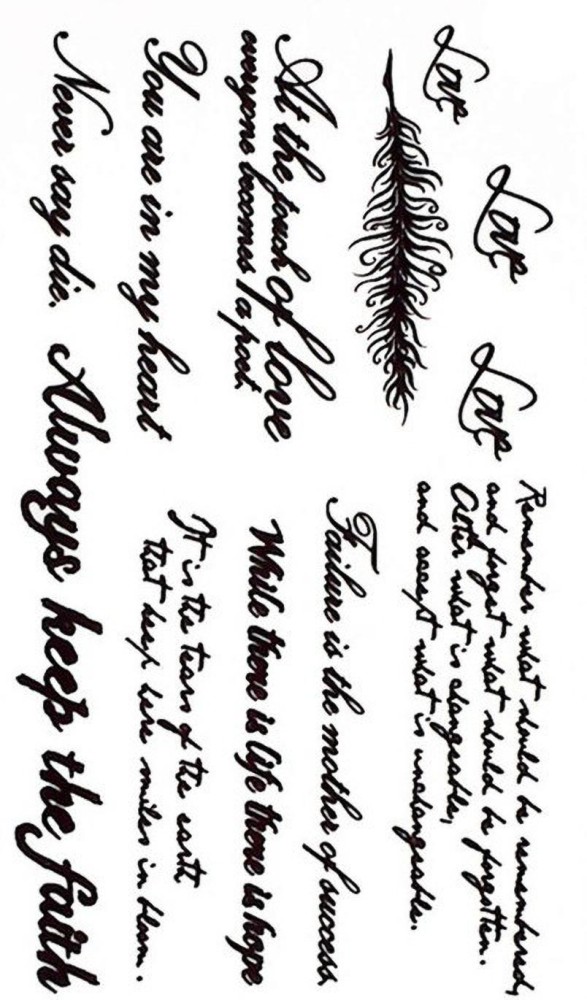 Love
Love
Love
Remember what should be remembered,
and forget what should be forgotten.
Alter what is changeable,
and accept what is unchangeable.
At the touch of love
everyone becomes a poet
Failure is the mother of success
While there is life there is hope
You are in my heart
It is the tears of the earth
that keep here smiles in bloom.
Never say die.
Always keep the faith